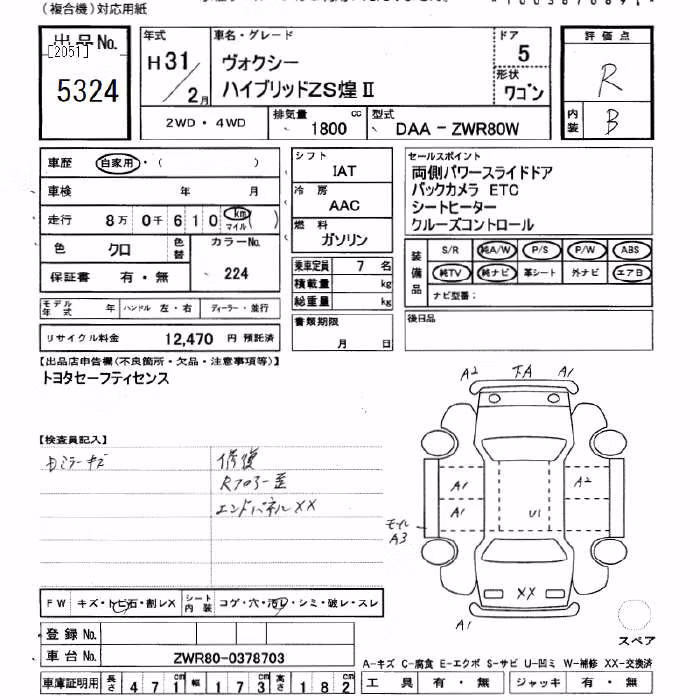 (複合機)対応用紙
出品No.
[2051]
5324
年式
H31/2月
車名・グレード
ヴォクシー
ハイブリッドZS煌Ⅱ
ドア
5
形状
ワゴン
評価点
R
内装
B
2WD・4WD
排気量
1800
cc
型式
DAA-ZWR80W
車歴
自家用・( )
車検 年 月
走行 8万 0千 6 1 0 km マイル
色 クロ
色替
カラーNo.
224
保証書 有・無
モデル年式 年
ハンドル 左・右
ディーラー・並行
リサイクル料金 12,470 円 預託済
シフト
IAT
冷房
AAC
燃料
ガソリン
乗車定員 7 名
積載量 kg
総重量 kg
書類期限
月 日
セールスポイント
両側パワースライドドア
バックカメラ ETC
シートヒーター
クルーズコントロール
装備品
S/R 純A/W P/S P/W ABS
純TV 純ナビ 革シート 外ナビ エアB
ナビ型番:
後日品
【出品店申告欄(不良箇所・欠品・注意事項等)】
トヨタセーフティセンス
【検査員記入】
修復
エンドパネルXX
A2 下A A1
A1 A2
A1 U1
モール
A3
XX
A1
スペア
FW キズ・トビ石・割レX
シート内装 コゲ・穴・汚レ・シミ・破レ・スレ
登録No.
車台No. ZWR80-0378703
車庫証明用 長さ 471cm 幅 173cm 高さ 182cm
A-キズ C-腐食 E-エクボ S-サビ U-凹ミ W-補修 XX-交換済
工具 有・無 ジャッキ 有・無